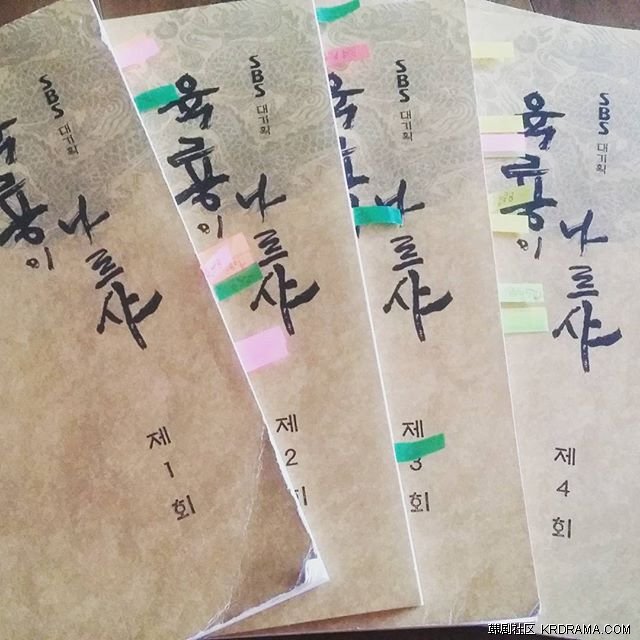 SBS 대기획
육룡이
나르샤
제1회
SBS 대기획
육룡이
나르샤
제2회
SBS 대기획
육룡이
나르샤
제3회
SBS 대기획
육룡이
나르샤
제4회
韩剧社区 KRDRAMA.COM